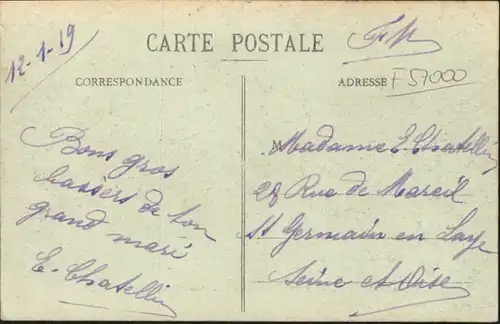 12-1-19
CARTE POSTALE
F M
CORRESPONDANCE
ADRESSE
F 57000
Bons gros
baisers de ton
grand mari
E. Chatellin
Madame E. Chatellin
28 Rue de Mareil
St Germain en Laye
Seine et Oise